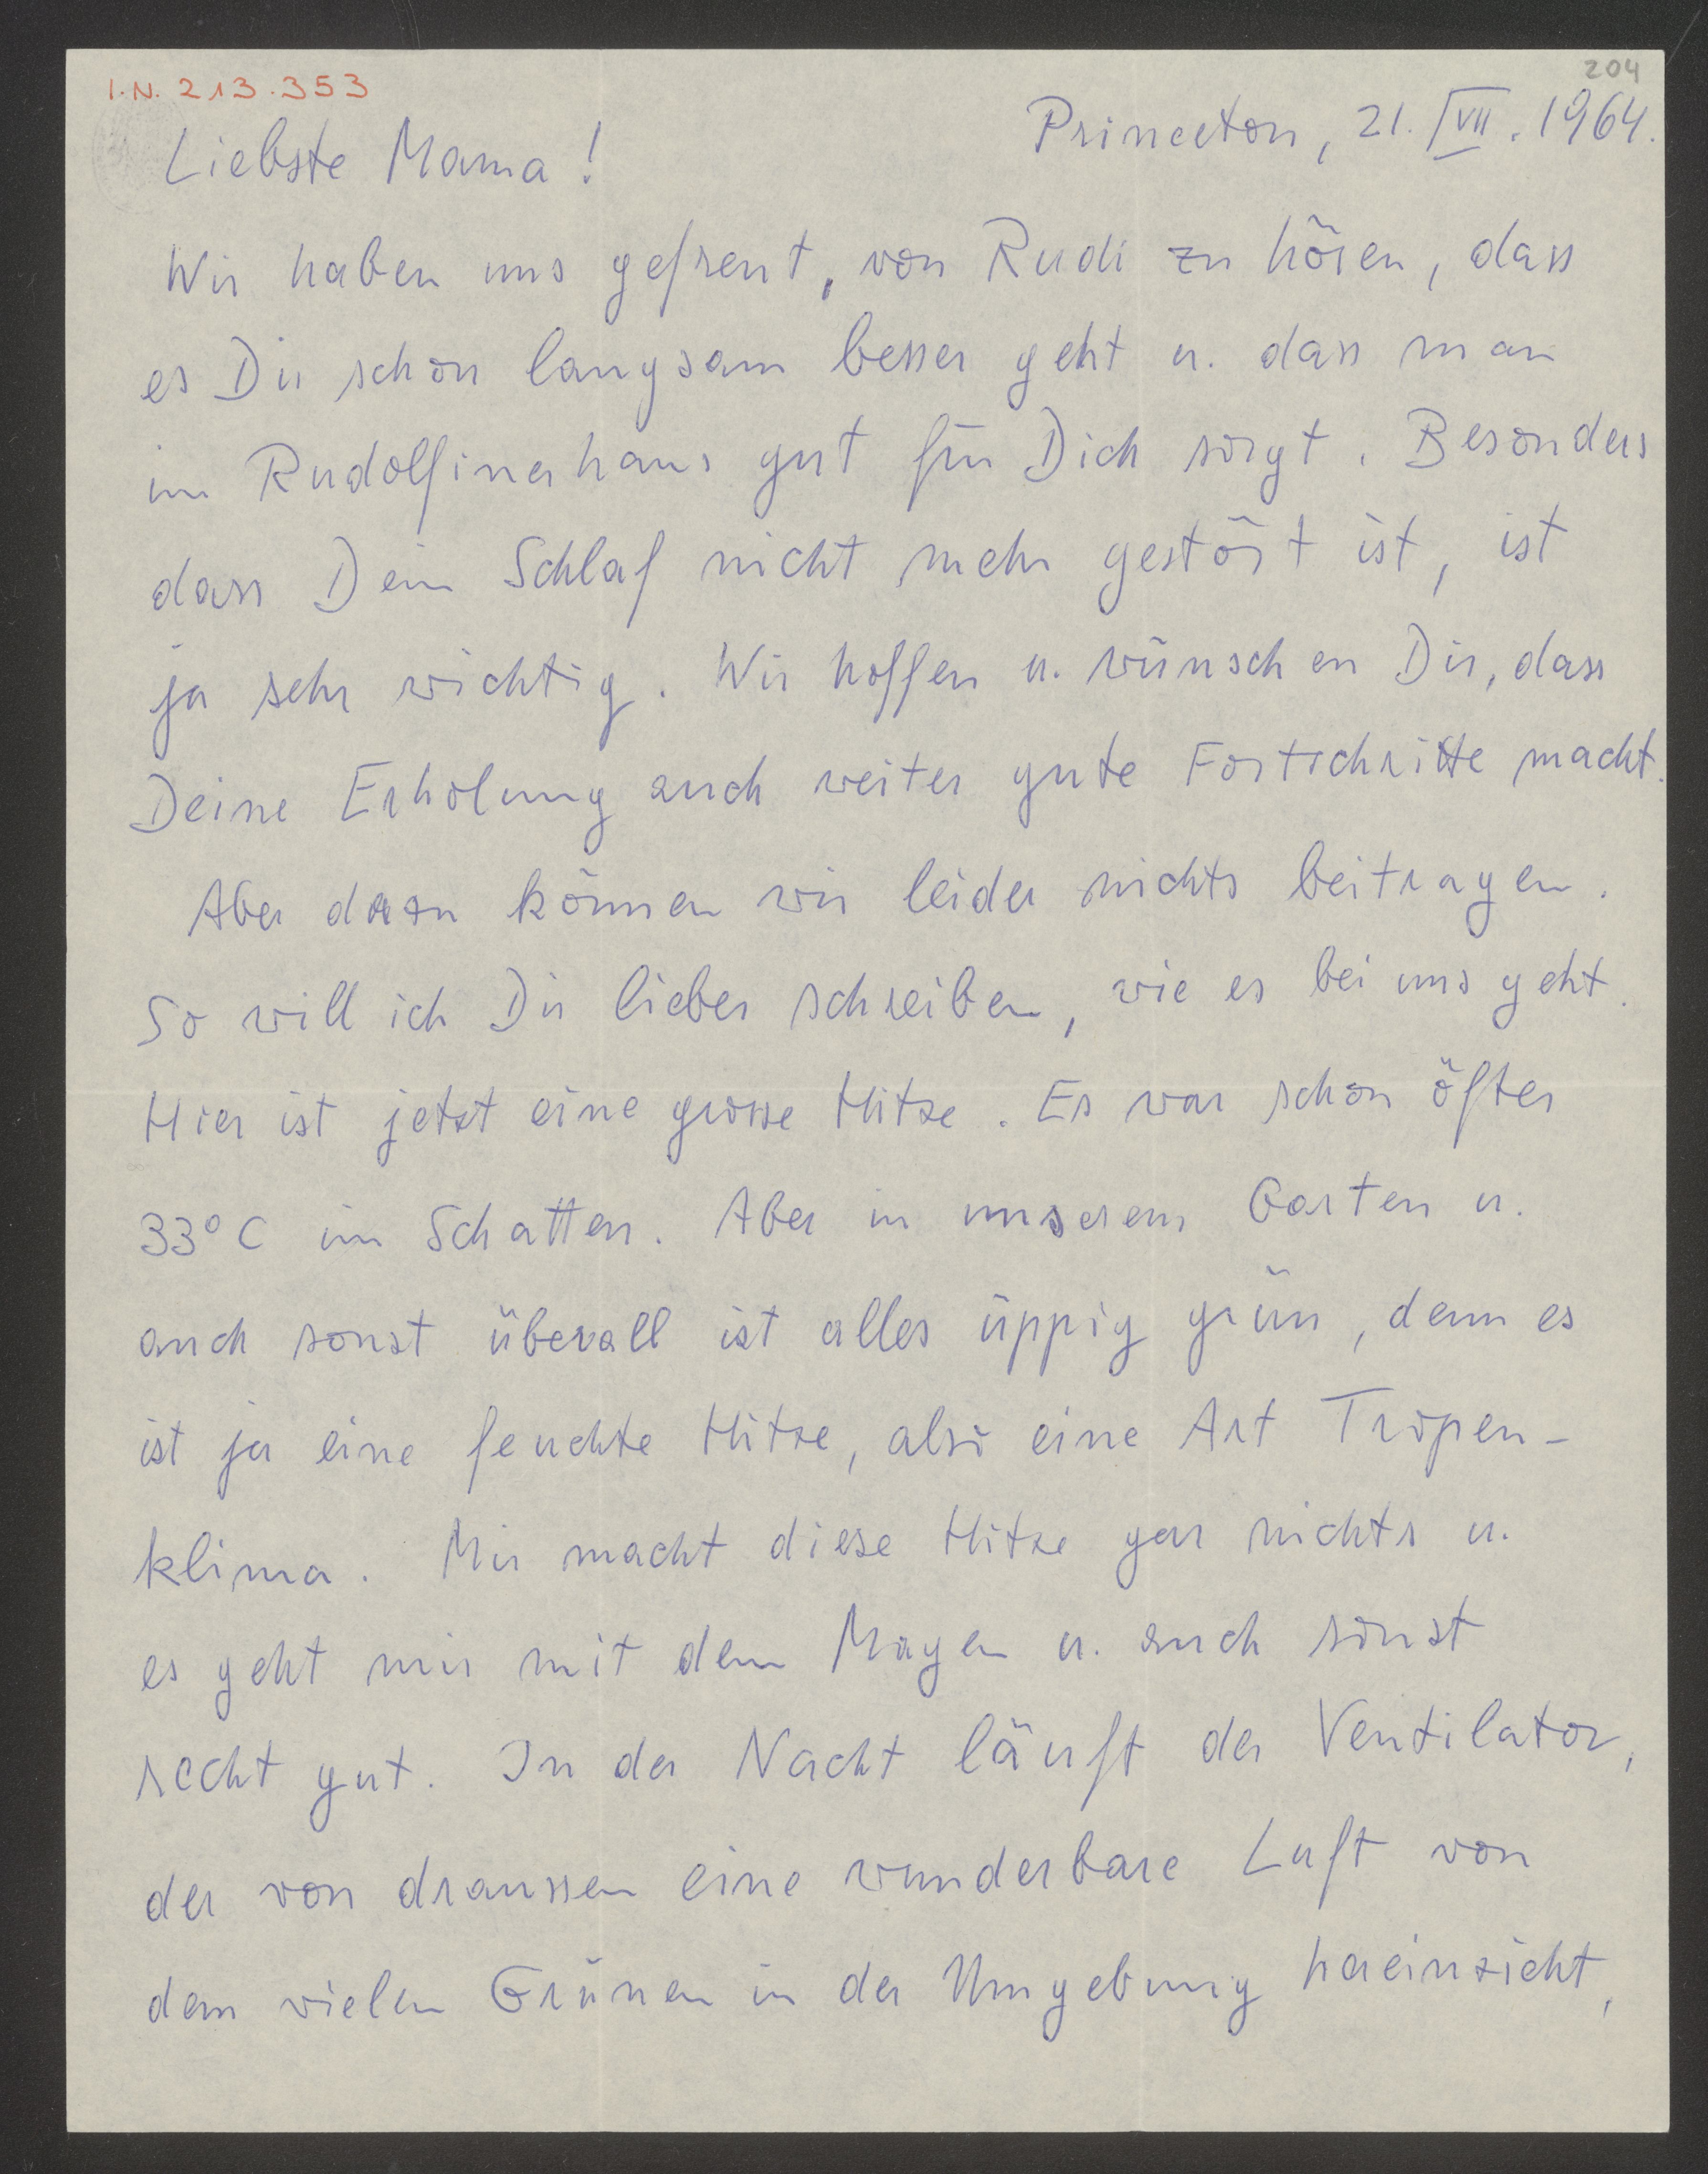 I.N. 213.353
204
Princeton, 21. VII. 1964.
Liebste Mama!
Wir haben uns gefreut, von Rudi zu hören, dass
es Dir schon langsam besser geht u. dass man
im Rudolfinerhaus gut für Dich sorgt. Besonders
dass Dein Schlaf nicht mehr gestört ist, ist
ja sehr wichtig. Wir hoffen u. wünschen Dir, dass
Deine Erholung auch weiter gute Fortschritte macht.
Aber dazu können wir leider nichts beitragen.
So will ich Dir lieber schreiben, wie es bei uns geht.
Hier ist jetzt eine grosse Hitze. Es war schon öfter
33° C im Schatten. Aber in unserem Garten u.
auch sonst überall ist alles üppig grün, denn es
ist ja eine feuchte Hitze, also eine Art Tropen-
klima. Mir macht diese Hitze gar nichts u.
es geht mir mit dem Magen u. auch sonst
recht gut. In der Nacht läuft der Ventilator,
der von draussen eine wunderbare Luft von
dem vielen Grünen in der Umgebung hereinzieht,